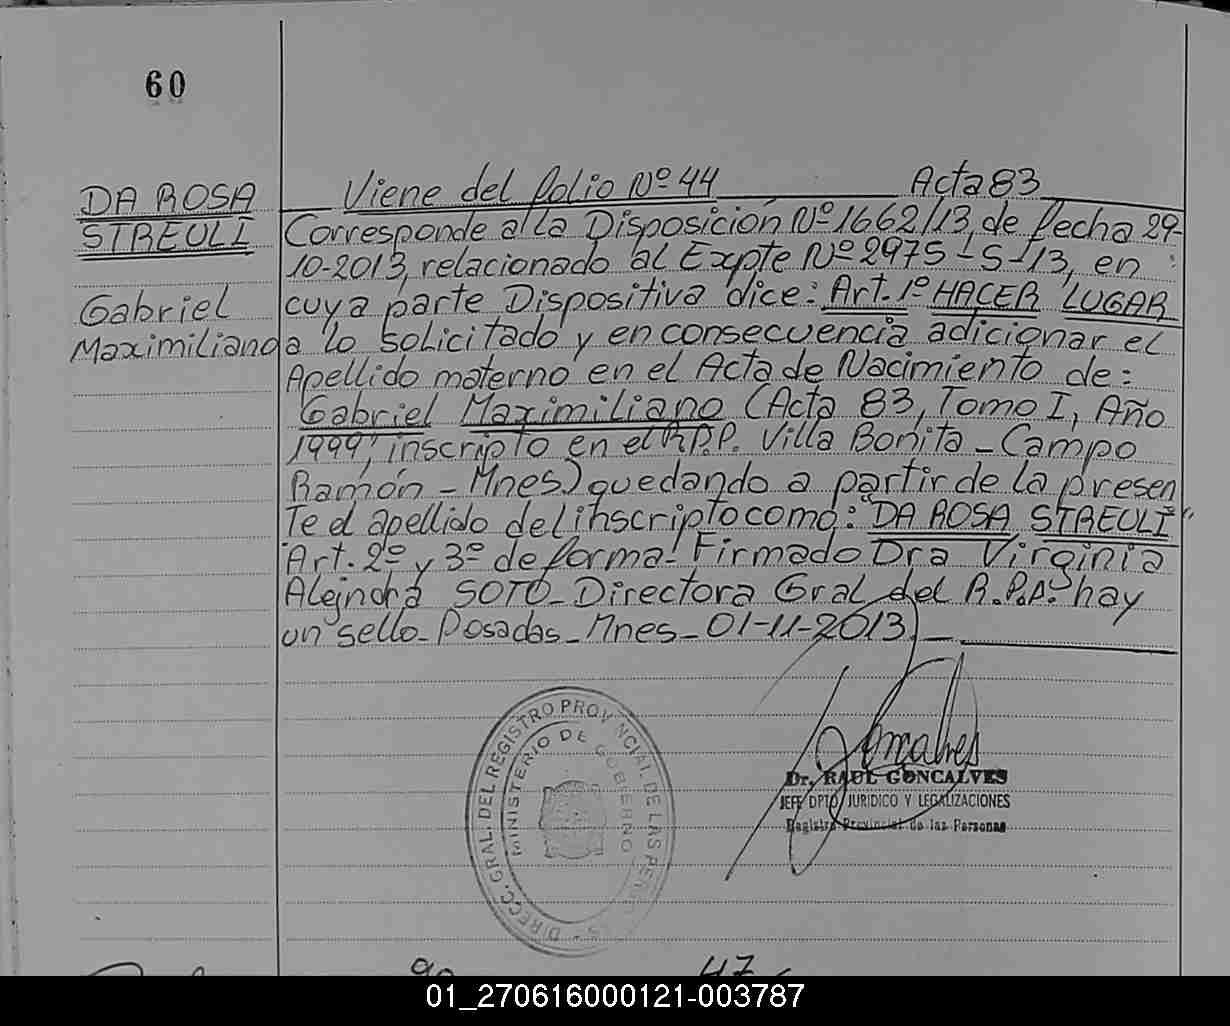 60
DA ROSA
STREULI
Gabriel
Maximiliano
Viene del folio Nº 44 Acta 83
Corresponde a la Disposición Nº 1662/13, de fecha 29-
10-2013, relacionado al Expte Nº 2975-S-13, en
cuya parte Dispositiva dice: Art. 1º HACER LUGAR
a lo solicitado y en consecuencia adicionar el
Apellido materno en el Acta de Nacimiento de:
Gabriel Maximiliano (Acta 83, Tomo I, Año
1999, inscripto en el R.P.P. Villa Bonita - Campo
Ramón - Mnes) quedando a partir de la presen
te el apellido del inscripto como: "DA ROSA STREULI"
Art. 2º y 3º de forma - Firmado Dra Virginia
Alejndra SOTO - Directora Gral del R.P.P. hay
un sello - Posadas - Mnes - 01-11-2013. -
DIRECC. GRAL. DEL REGISTRO PROVINCIAL DE LAS PERSONAS
MINISTERIO DE GOBIERNO
Goncalves
Dr. RAUL GONCALVES
JEFE DPTO JURIDICO Y LEGALIZACIONES
Registro Provincial de las Personas
01_270616000121-003787